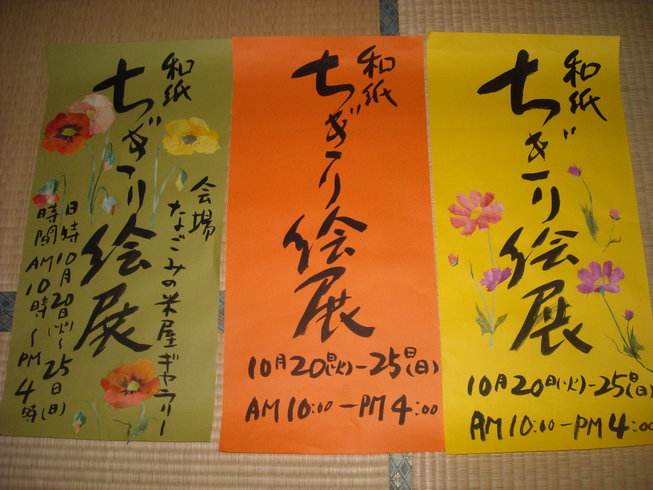 和紙
ちぎり絵展
会場
なごみの米屋ギャラリー
日時10月20日(火)〜25日(日)
時間AM10時〜PM4時
和紙
ちぎり絵展
10月20日(火)-25日(日)
AM10:00-PM4:00
和紙
ちぎり絵展
10月20日(火)-25日(日)
AM10:00-PM4:00